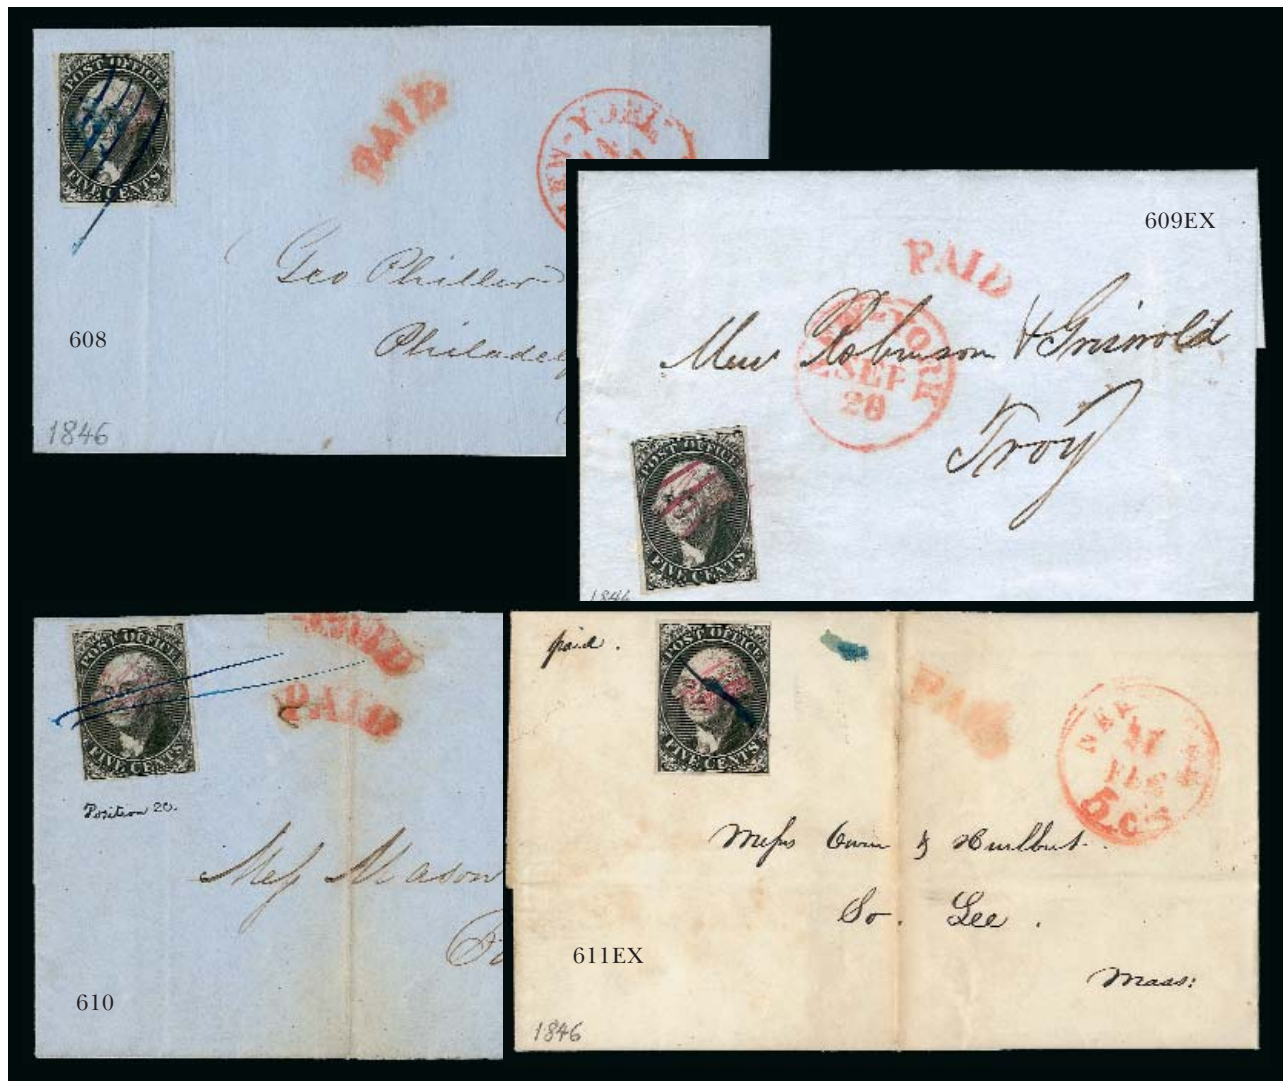 POST OFFICE
FIVE CENTS
PAID
Geo Philler
608
1846
609EX
PAID
NEW-YORK
SEP
28
Robinson & Griswold
Troy
POST OFFICE
FIVE CENTS
1846
POST OFFICE
FIVE CENTS
PAID
PAID
Position 20.
Mess Mason
610
paid.
POST OFFICE
FIVE CENTS
PAID
FEB
5 cts
Messrs Owen & Hurlbut
So. Lee.
Mass:
611EX
1846